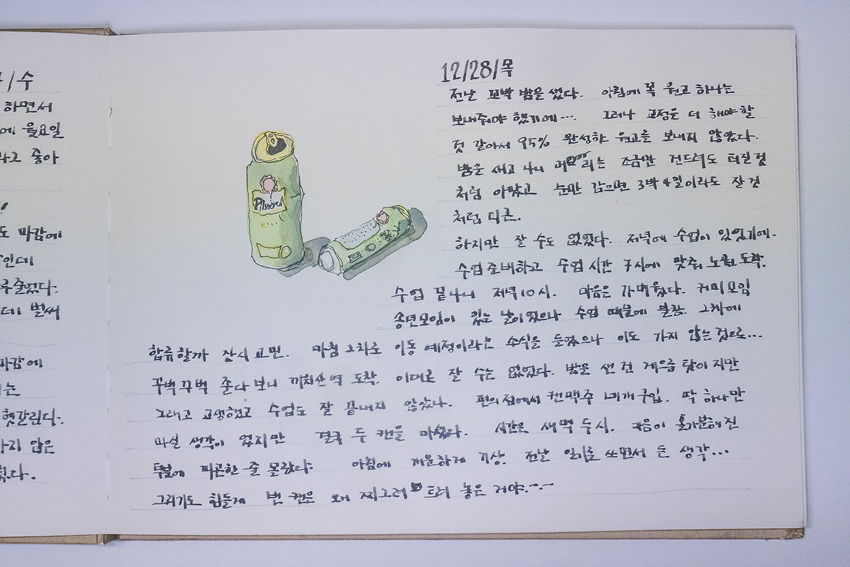 /수
하면서
에 월요일
라고 좋아
도 마감에
인데
데 벌써
마감에
는
헷갈린다.
하지 않은
다.
12/28/목
전날 꼬박 밤을 샜다. 아침에 꼭 원고 하나는
보내줘야 했기에… 그러나 교정을 더 해야 할
것 같아서 95% 완성한 원고를 보내지 않았다.
밤을 새고 나니 조금만 건드려도 터질 것
처럼 아팠고 눈만 감으면 3박 4일이라도 잘 것
처럼 피곤.
하지만 잘 수도 없었다. 저녁에 수업이 있었기에.
수업 준비하고 수업 시간 7시에 맞춰 도착.
수업 끝나니 저녁 10시. 마음은 가벼웠다. 커피모임
송년모임이 있는 날이었으나 수업 때문에 불참. 2차에
합류할까 잠시 고민. 마침 2차로 이동 예정이라는 소식을 들었으나 이도 가지 않는 것으로…
꾸벅꾸벅 졸다 보니 까치산역 도착. 이대로 잘 수는 없었다. 밤을 샌 건 게으름 탓이지만
그래도 고생했고 수업도 잘 끝내지 않았나. 편의점에서 캔맥주 네 개 구입. 딱 하나만
마실 생각이 었지만 결국 두 캔을 마셨다. 시간은 새벽 두시. 마음이 홀가분해진
덕분에 피곤한 줄 몰랐다. 아침에 개운하게 기상. 전날 일기를 쓰면서 든 생각…
그러기도 힘들게 번 캔은 왜 찌그러트려 놓은 거야.-.-
Pilsner